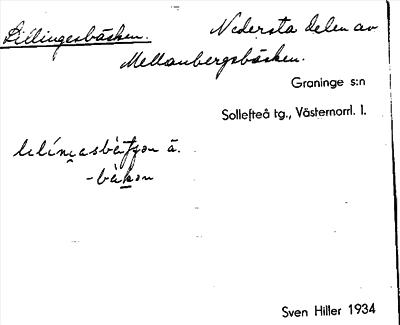 Lillingesbäcken. Nedersta delen av
Mellanbergsbäcken.
Graninge s:n
Sollefteå tg., Västernorrl. l.
-bäkən
Sven Hiller 1934